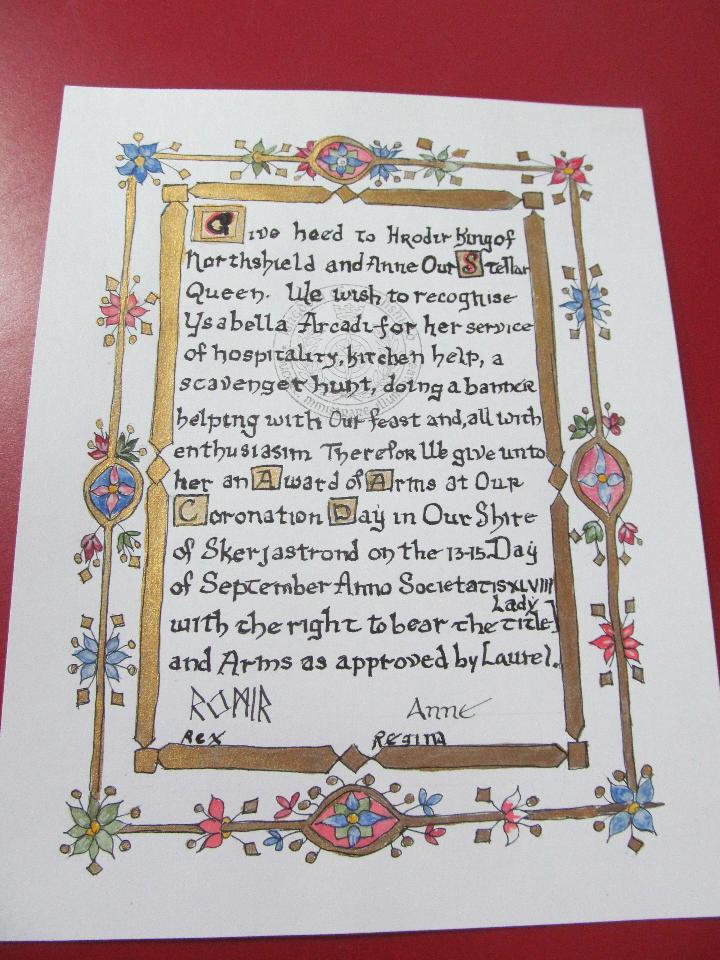 Give heed to Hrodir King of
Northshield and Anne Our Stellar
Queen. We wish to recognise
Ysabella Arcadi for her service
of hospitality, kitchen help, a
scavenger hunt, doing a banner
helping with Our feast and, all with
enthusiasim Therefor We give unto
her an Award of Arms at Our
Coronation Day in Our Shire
of Skerjastrond on the 13-15. Day
of September Anno Societatis XLVIII
Lady
with the right to bear the title
and Arms as approved by Laurel.
Anne
Rex Regina